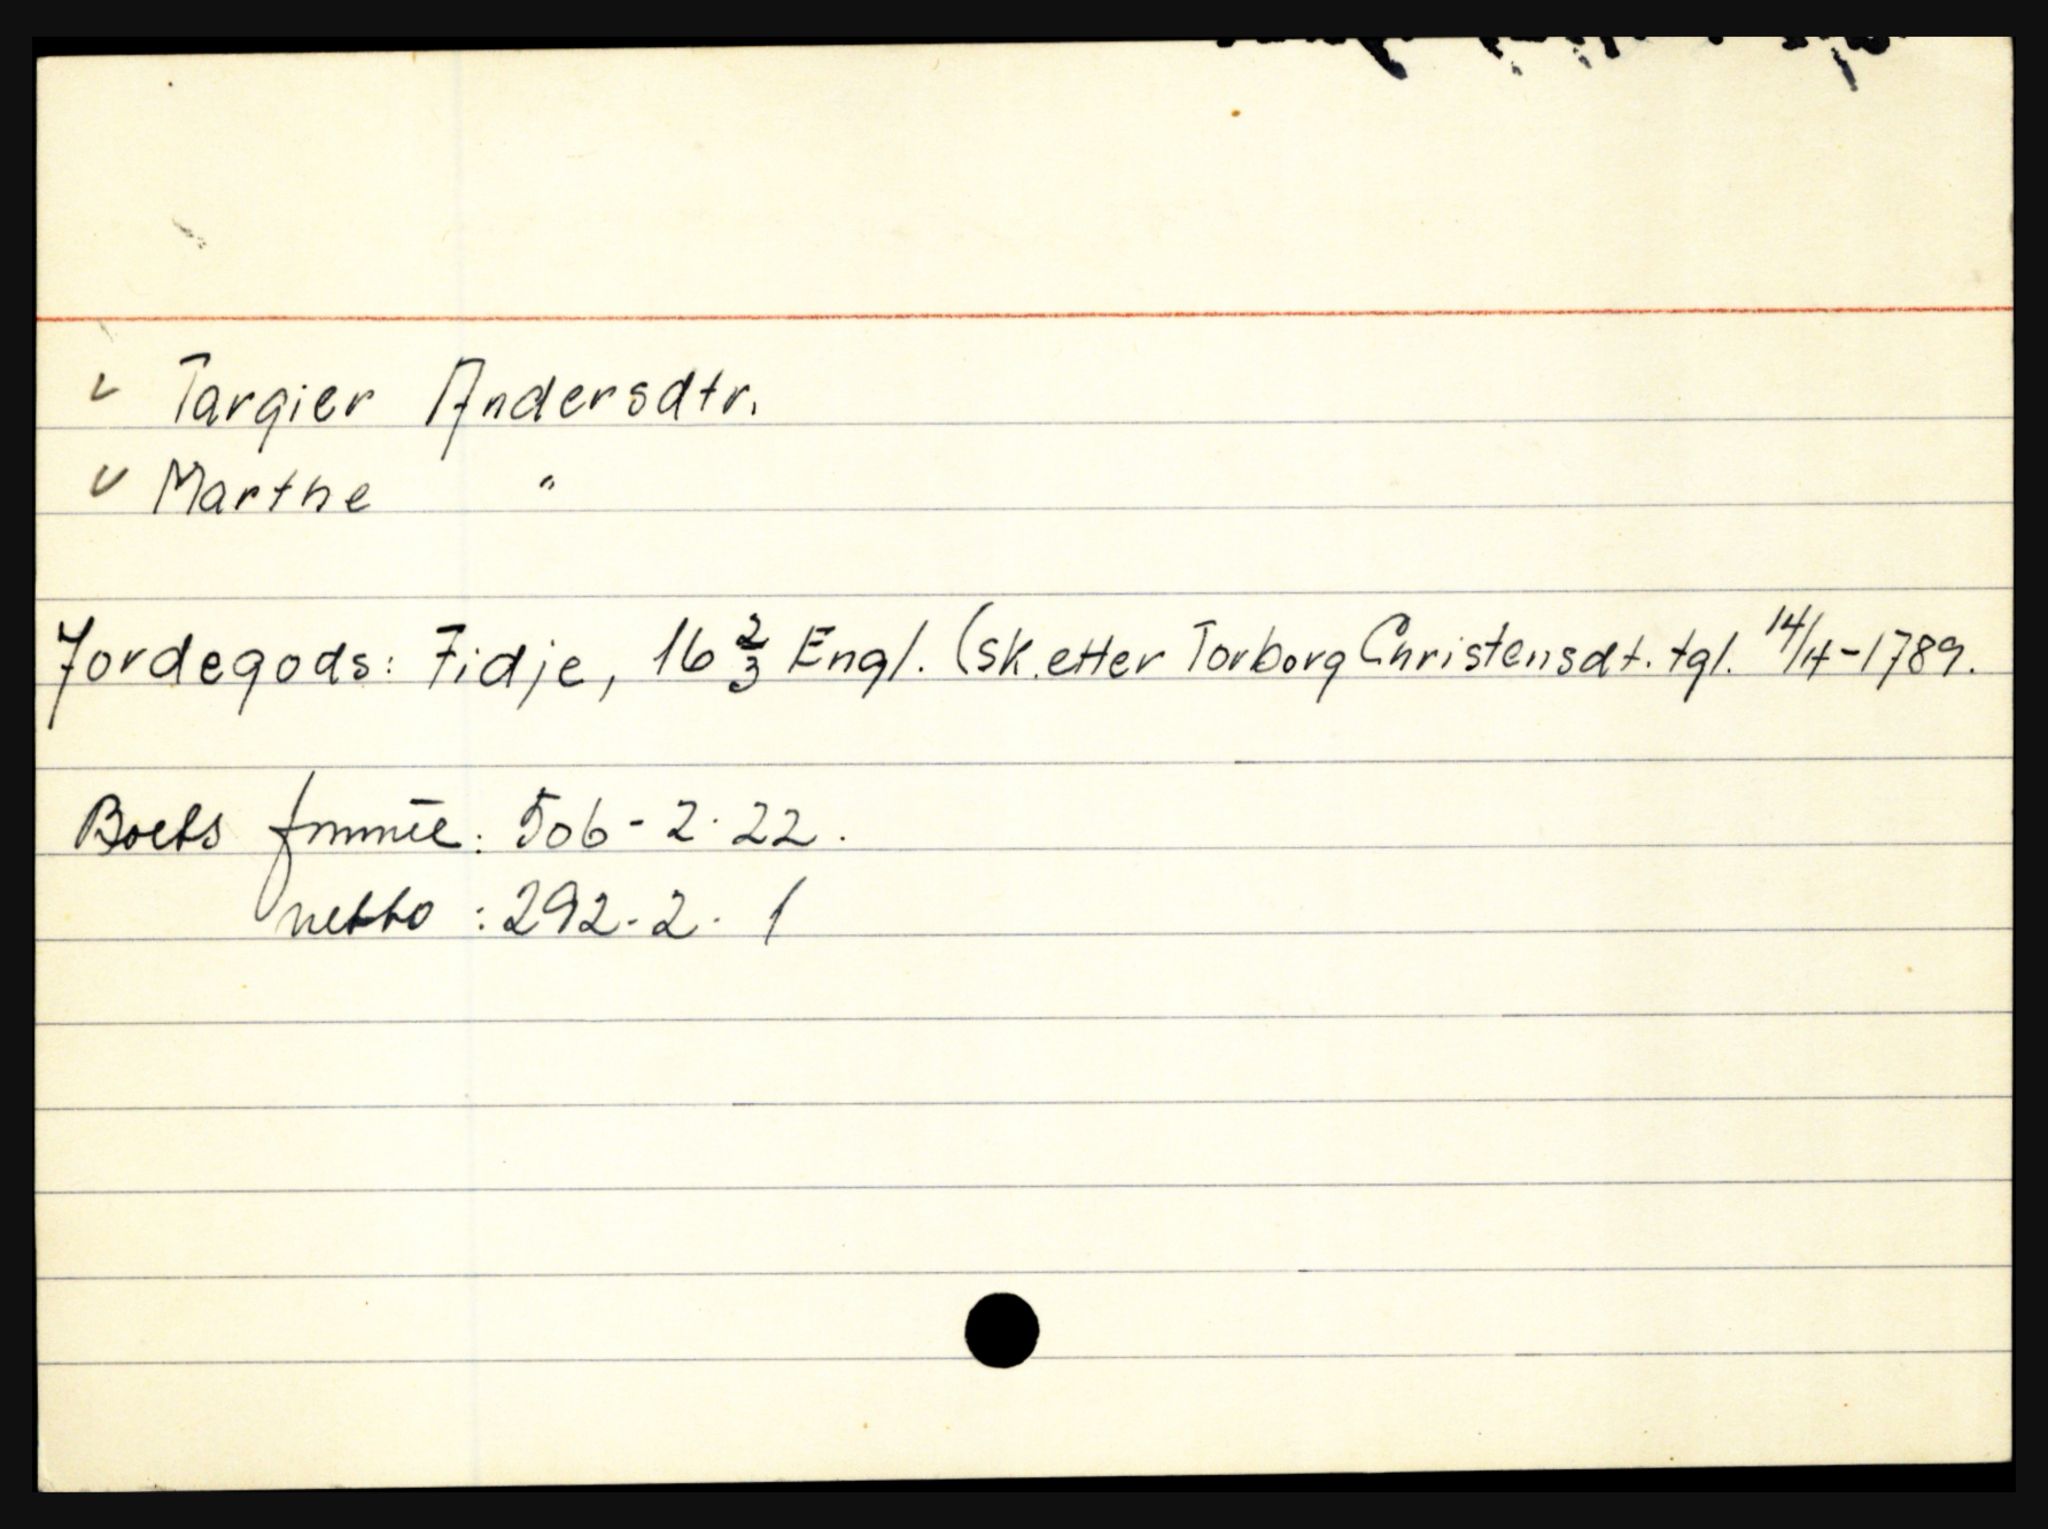 ✓ Targier Andersdtr.
✓ Marthe "
Jordegods: Fidje, 16 2/3 Engl. (sk. etter Torborg Christensdt. tgl. 14/4-1789.
Boets
netto : 292-2- 1